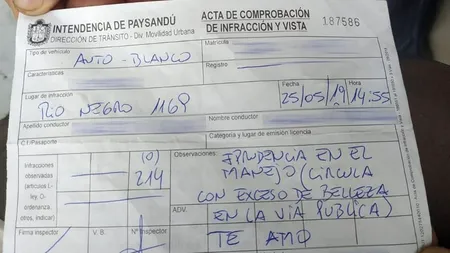 INTENDENCIA DE PAYSANDÚ
DIRECCIÓN DE TRÁNSITO - Div. Movilidad Urbana
ACTA DE COMPROBACIÓN
DE INFRACCIÓN Y VISTA
187686
Tipo de vehículo
AUTO - BLANCO
Matrícula
Características
Registro
Lugar de infracción
RIO NEGRO 1169
Fecha
25/05/19
Hora
14:55
Apellido conductor
Nombre conductor
C.I/Pasaporte
Categoría y lugar de emisión licencia
Infracciones
observadas
(artículos L-
ley, O-
ordenanza,
otros, indicar)
(0)
214
Observaciones:
EN EL
MANEJO (CIRCULA
CON EXCESO DE BELLEZA
EN LA VIA PUBLICA)
ADV.
TE AMO
Firma inspector
V. B.
Nº Inspector